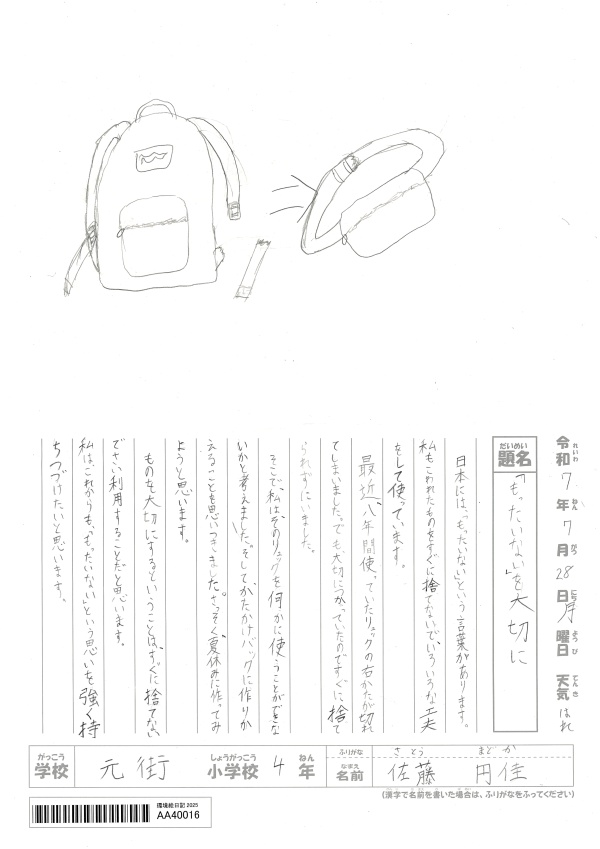 令和7年7月28日月曜日 天気 はれ
れいわ ねん がつ にち ようび てんき
だいめい
題名
「もったいない」を大切に
日本には、「もったいない」という言葉があります。
私もこわれたものをすぐに捨てないでいろいろな工夫
をして使っています。
最近、八年間使っていたリュックの右かたが切れ
てしまいました。でも大切につかっていたのですぐに、捨て
られずにいました。
そこで、私は、そのリュックを何かに使うことができな
いかと考えました。そして、かたかけバッグに作りか
えることを思いつきました。さっそく夏休みに作ってみ
ようと思います。
ものを大切にするということは、すぐに捨てない
でさい利用することだと思います。
私はこれからも、「もったいない」という思いを強く持
ちつづけたいと思います。
がっこう しょうがっこう ねん ふりがな さとう まどか
学校 元街 小学校 4年 なまえ 名前 佐藤 円佳
(漢字で名前を書いた場合は、ふりがなをふってください)
環境絵日記2025
AA40016